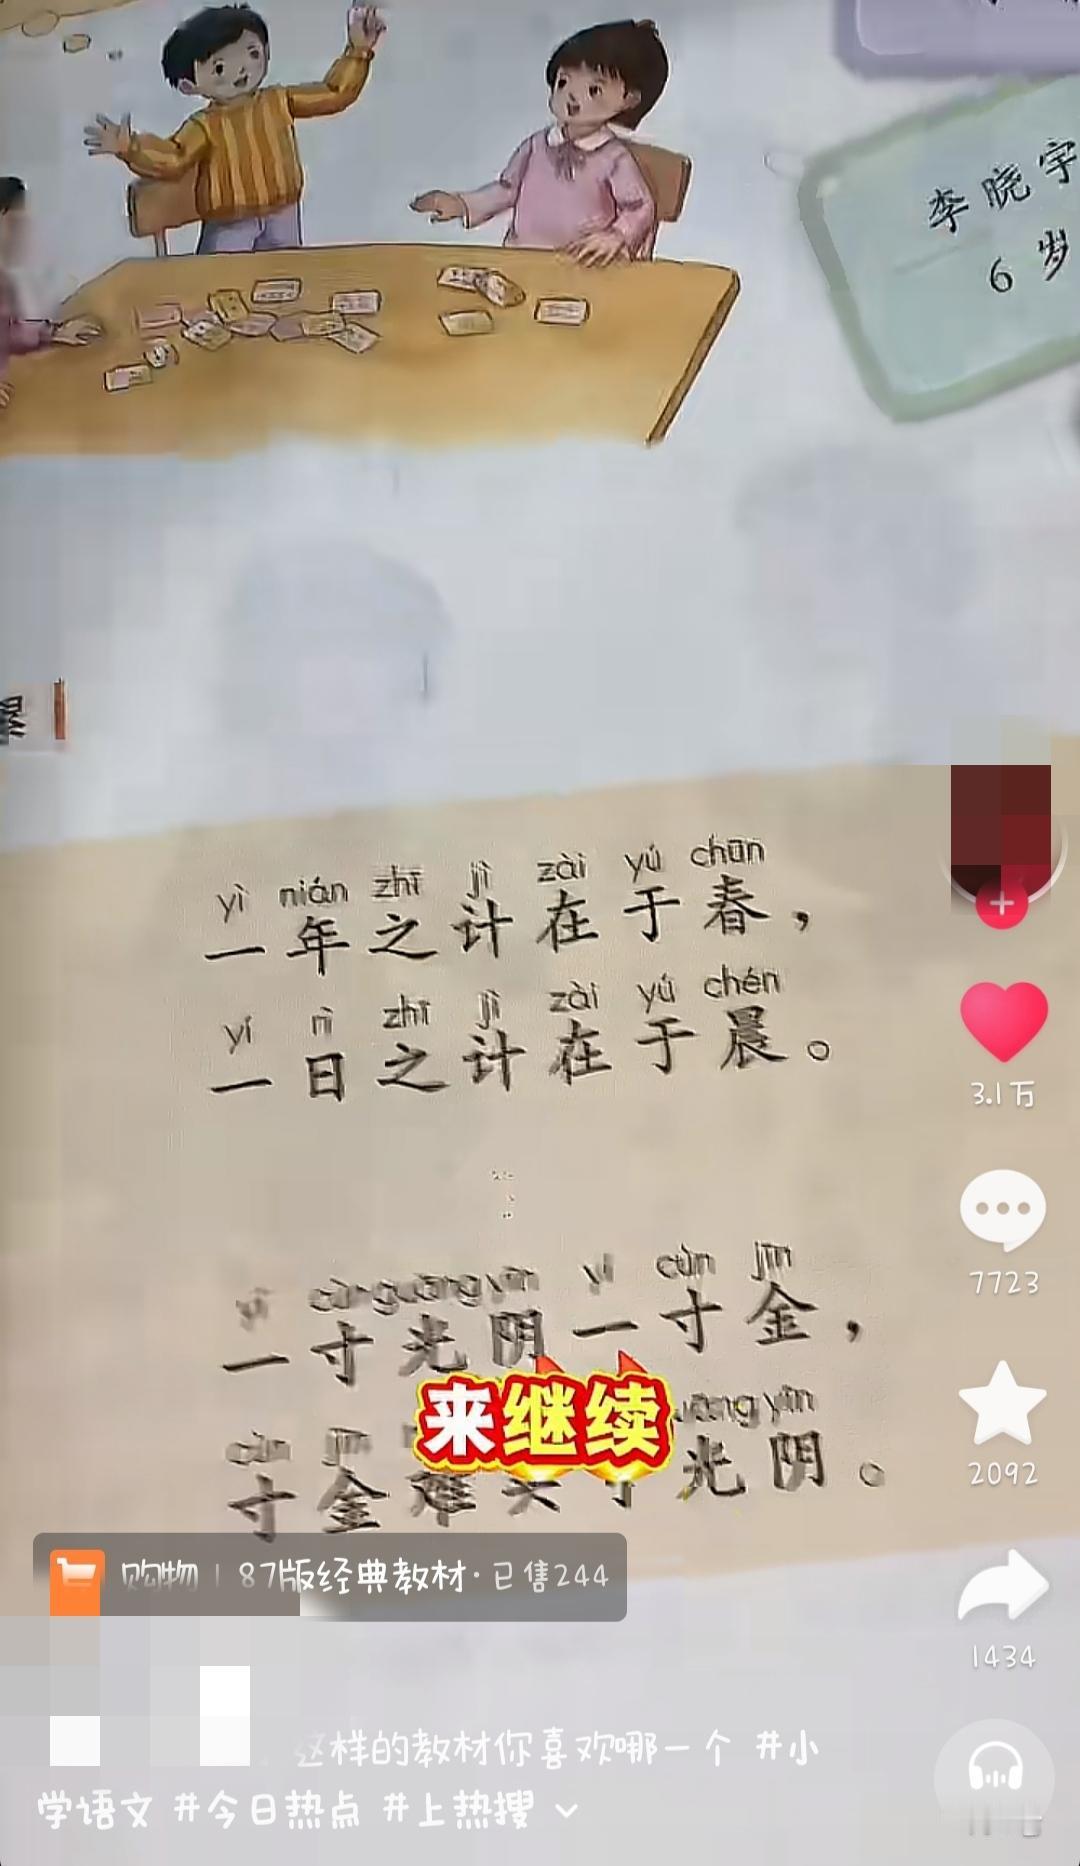 李晓宇
6岁
yì nián zhī jì zài yú chūn
一年之计在于春，
yí rì zhī jì zài yú chén
一日之计在于晨。
yí cùn guāng yīn yí cùn jīn
一寸光阴一寸金，
3.1万
7723
cùn jīn
guāng yīn
寸金难买寸光阴。
来继续
2092
购物 | 87版经典教材·已售244
1434
这样的教材你喜欢哪一个 #小
学语文 #今日热点 #上热搜